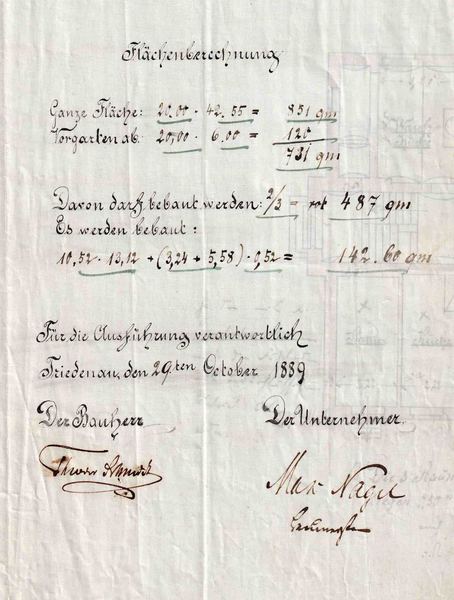 Flächenberechnung
Ganze Fläche: 20.00 · 42.55 = 851 qm
Vorgarten ab: 20,00 · 6.00 = 120
731 qm
Davon darf bebaut werden: 2/3 = rot 487 qm
Es werden bebaut:
10,52 · 13,12 + (3,24 + 5,58) · 0,52 = 142.60 qm
Für die Ausführung verantwortlich
Friedenau, den 29.ten October 1889
Der Bauherr Der Unternehmer.
Max Nagel